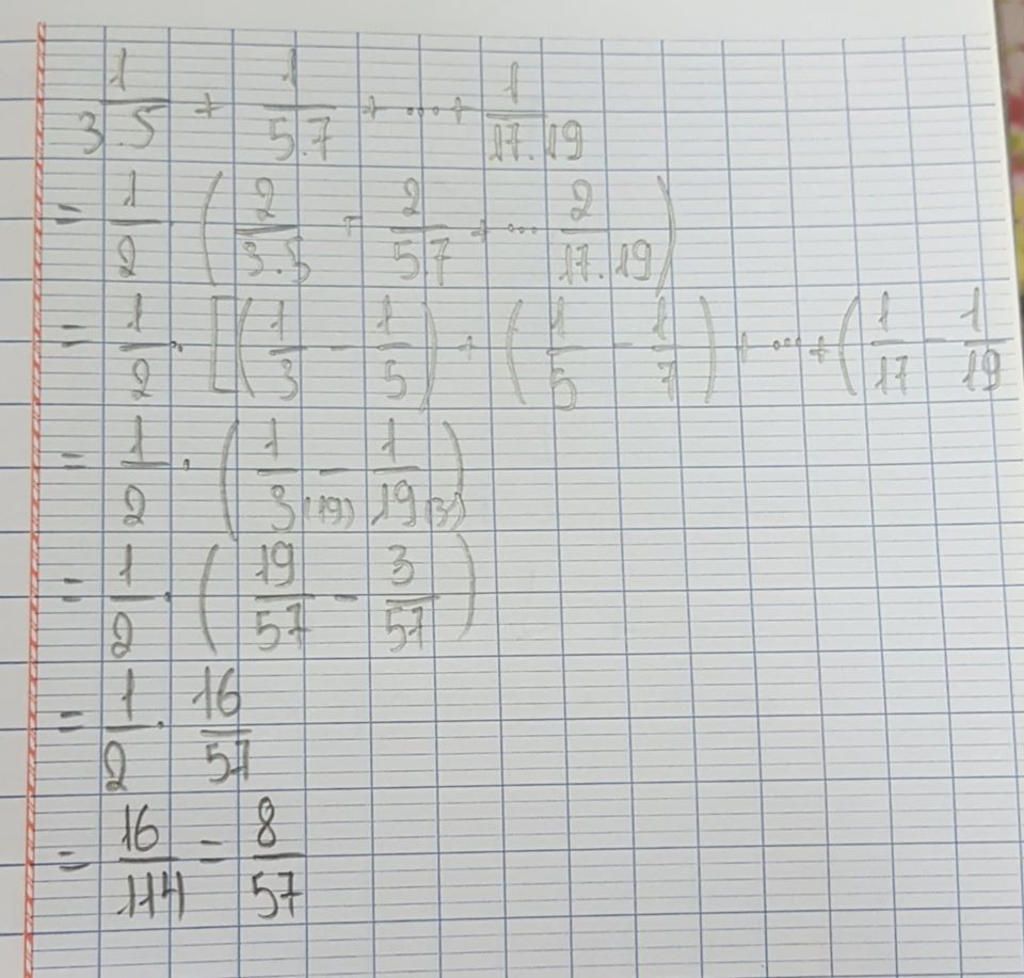 1/3.5 + 1/5.7 + ... + 1/17.19
= 1/2 (2/3.5 + 2/5.7 + ... 2/17.19)
= 1/2 . [(1/3 - 1/5) + (1/5 - 1/7) + ... + (1/17 - 1/19
= 1/2 . (1/3(19) - 1/19(3))
= 1/2 . (19/57 - 3/57)
= 1/2 . 16/57
= 16/114 = 8/57